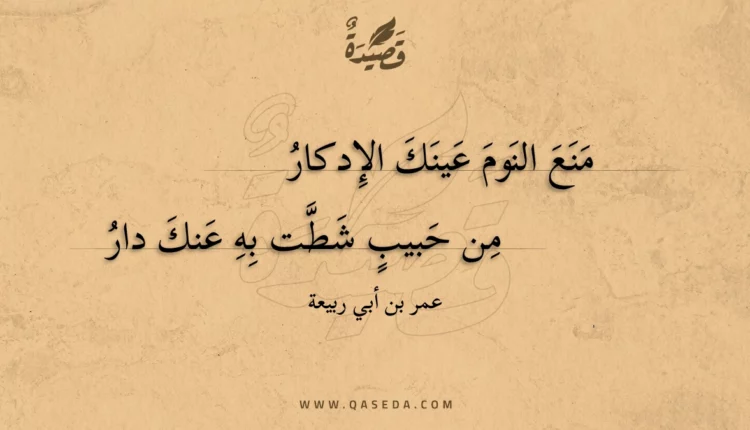 قَصِيدَةٌ
مَنَعَ النَومَ عَينَكَ الإِدكارُ
مِن حَبيبٍ شَطَّت بِهِ عَنكَ دارُ
عمر بن أبي ربيعة
WWW.QASEDA.COM